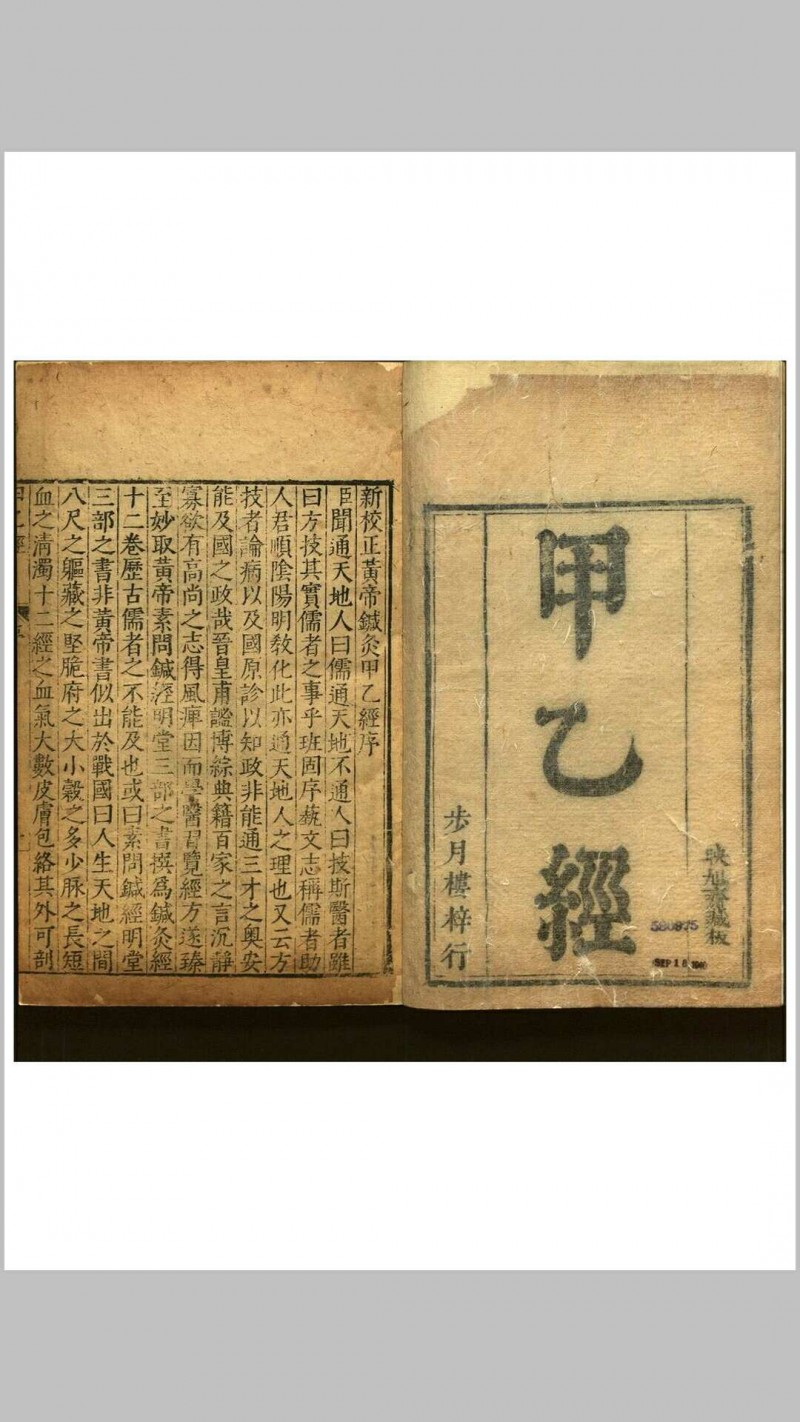 映旭齋藏板
甲乙經
步月樓梓行
580875
SEP 16
新校正黃帝鍼灸甲乙經序
臣聞通天地人曰儒通天地不通人曰技斯醫者雖
曰方技其實儒者之事乎班固序藝文志稱儒者助
人君順陰陽明教化此亦通天地人之理也又云方
技者論病以及國原診以知政非能通三才之奧安
能及國之政哉晉皇甫謐博綜典籍百家之言沉靜
寡欲有高尚之志得風痺因而學醫習覽經方遂臻
至妙取黃帝素問鍼經明堂三部之書撰爲鍼灸經
十二卷歷古儒者之不能及也或曰素問鍼經明堂
三部之書非黃帝書似出於戰國曰人生天地之間
八尺之軀藏之堅脆府之大小穀之多少脉之長短
血之淸濁十二經之血氣大數皮膚包絡其外可剖
甲乙經